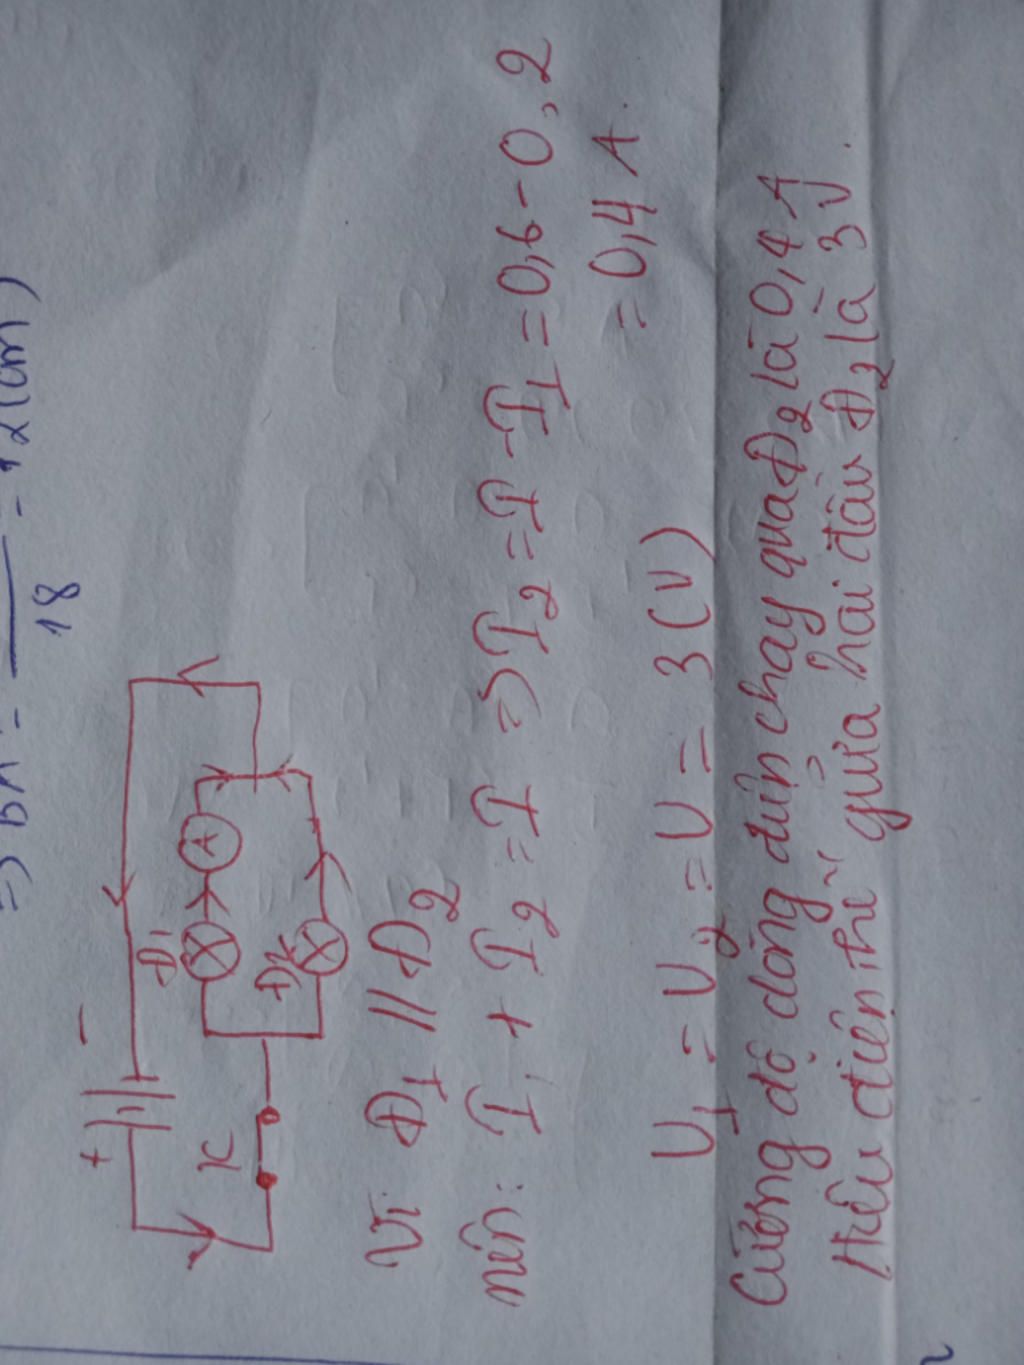 18
+ -
K
Đ1
A
Đ2
Vì Đ1 // Đ2
nên: I1 + I2 = I => I2 = I - I1 = 0,6 - 0,2
= 0,4 A.
U1 = U2 = U = 3 (V)
Cường độ dòng điện chạy qua Đ2 là 0,4 A
Hiệu điện thế giữa hai đầu Đ2 là 3 V.